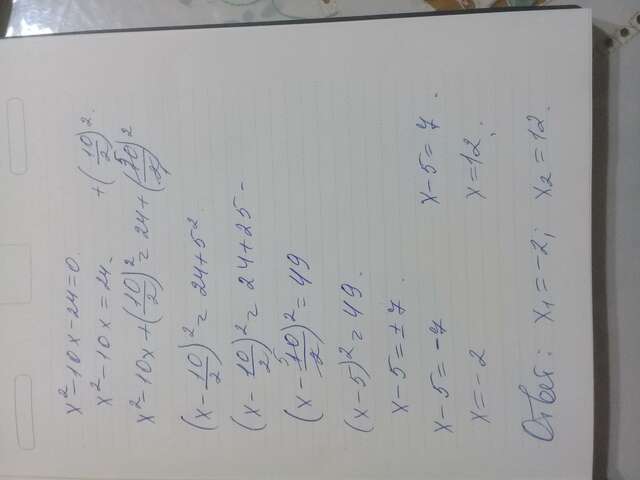 x² - 10x - 24 = 0.
x² - 10x = 24. + (10/2)².
x² - 10x + (10/2)² = 24 + (10/2)² 5
(x - 10/2)² = 24 + 5².
(x - 10/2)² = 24 + 25 -
(x - 10/2)² = 49 5
(x - 5)² = 49.
x - 5 = ± 7.
x - 5 = -7 x - 5 = 7.
x = -2 x = 12.
Ответ: x₁ = -2; x₂ = 12.